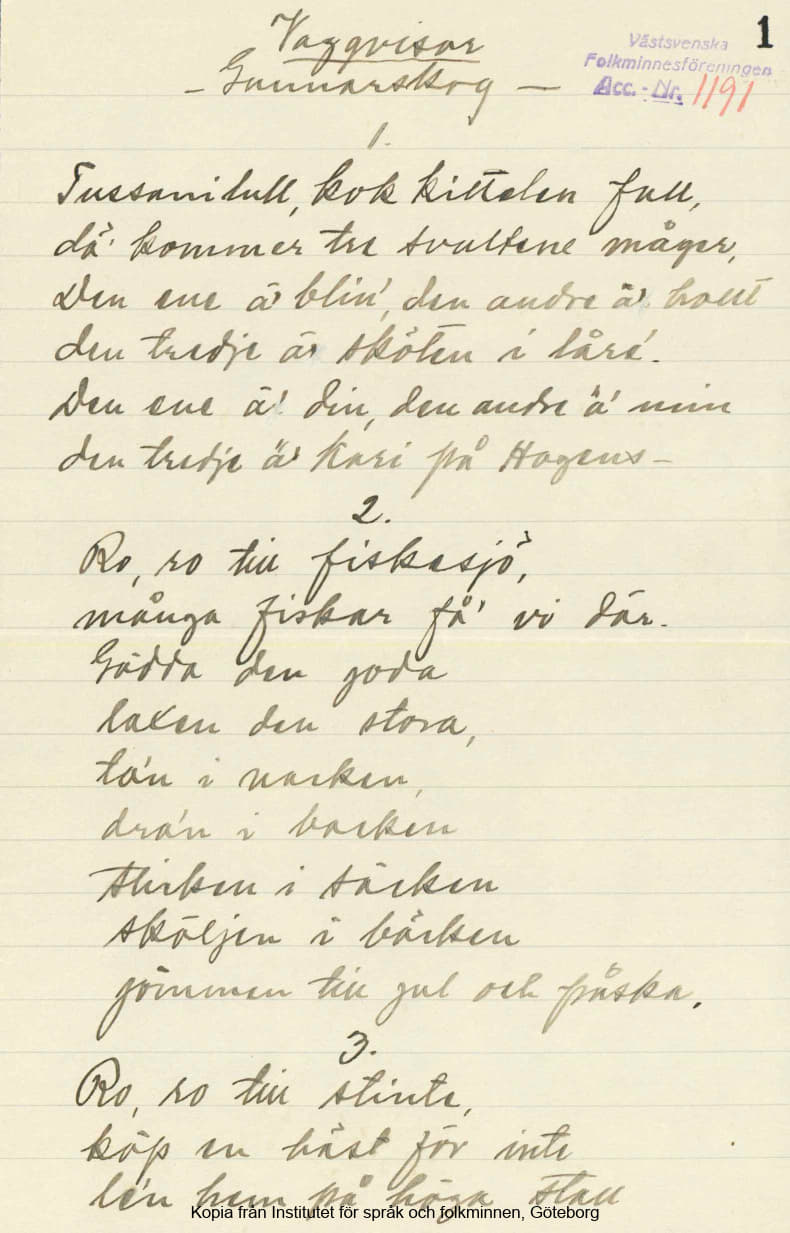 Vaggvisor
1
Västsvenska
Folkminnesföreningen
Acc. - Nr. 1191
- Gunnarskog -
1.
Tussanilull, kok kittelen full,
dä' kommer tre svultene måger,
Den ene ä' blin', den andre ä' hallt
den tredje ä' sköten i låre'.
Den ene ä' din, den andre ä' min
den tredje ä' Kari på Hagens -
2.
Ro, ro till fiskesjö,
många fiskar få' vi där.
Gädda den goda
laxen den stora,
ta'n i nacken,
dra'n i backen
stick'en i säcken
skölj'en i bäcken
gömm'en till jul och påska.
3.
Ro, ro till stinte,
köp en häst för inte
le'n hem på höga stall
Kopia från Institutet för språk och folkminnen, Göteborg